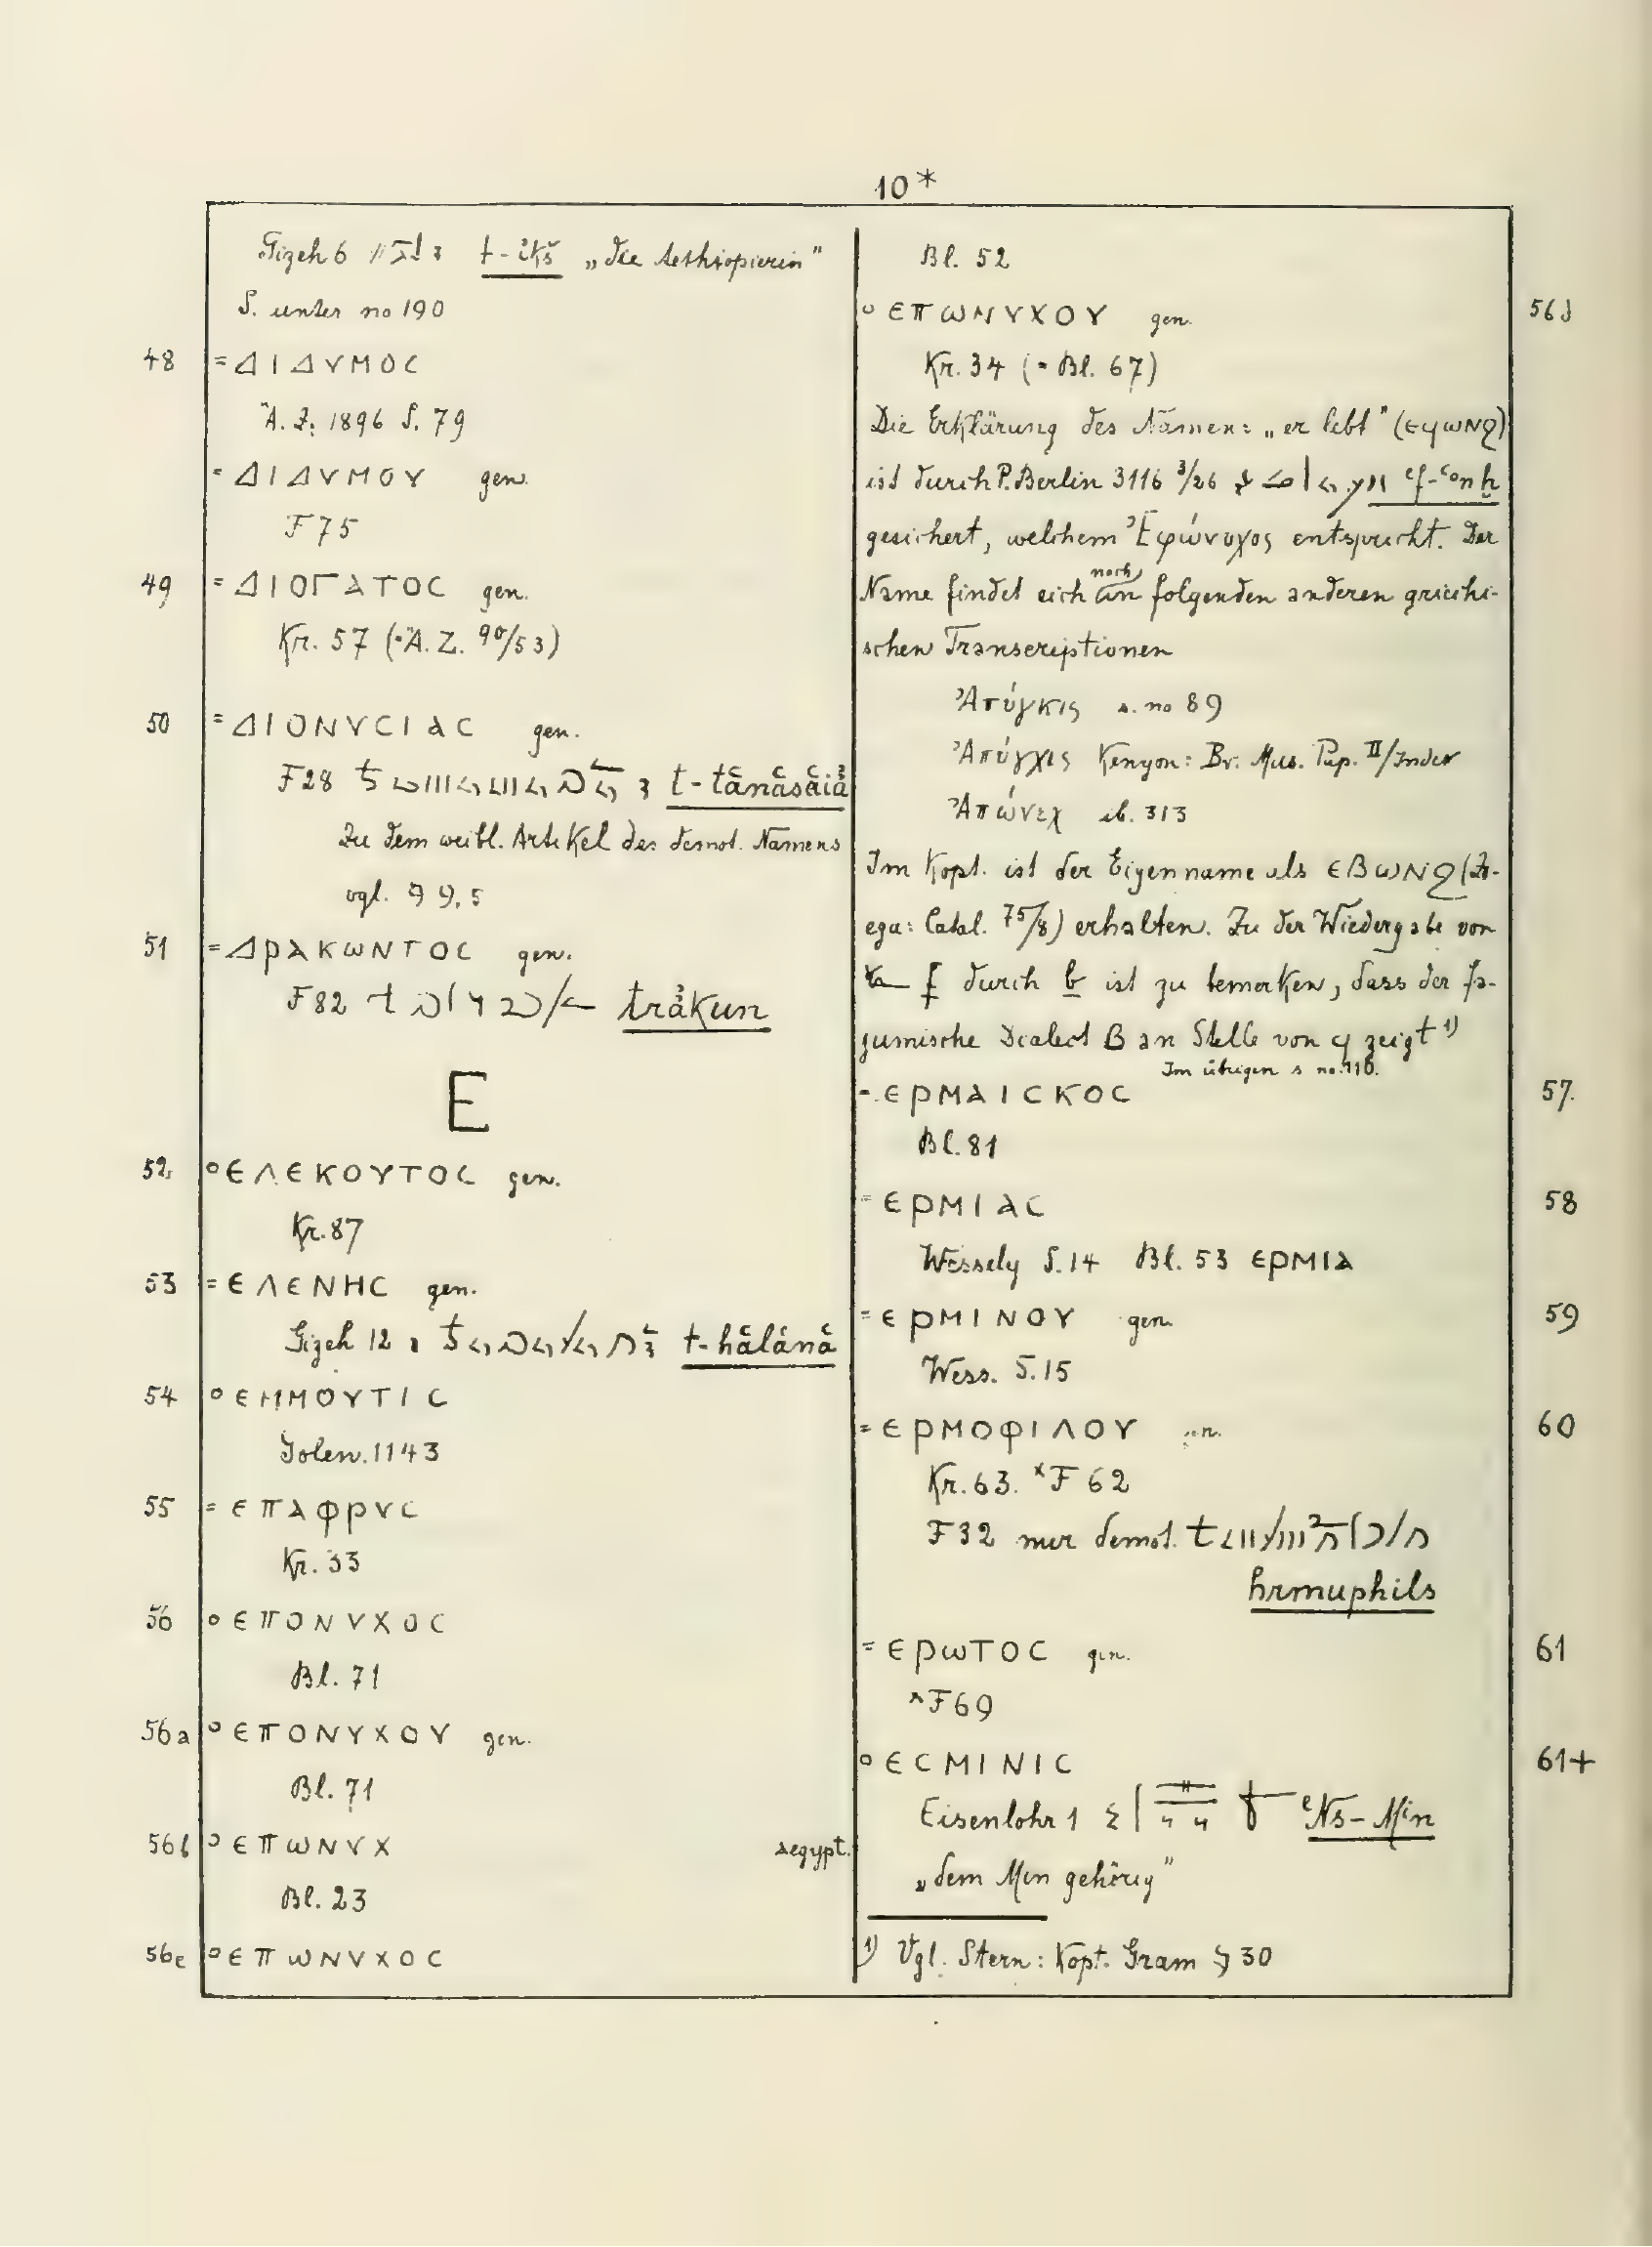 10*
Gizeh 6 t-ikš „die Aethiopierin"
S. unter no 190
48 = ΔΙΔΥΜΟC
Ä.Z. 1896 S. 79
= ΔΙΔΥΜΟΥ gen.
F 75
49 = ΔΙΟΓΑΤΟC gen.
Kr. 57 (=Ä.Z. 90/53)
50 = ΔΙΟΝΥCΙΑC gen.
F28 t-tånåsåiå
Zu dem weibl. Artikel des demot. Namens
vgl. 99, 5
51 = ΔΡΑΚΩΝΤΟC gen.
F82 tråkun
E
52 ° ΕΛΕΚΟΥΤΟC gen.
Kr. 87
53 = ΕΛΕΝΗC gen.
Gizeh 12 t-hålånå
54 ° ΕΜΜΟΥΤΙC
Golen. 1143
55 = ΕΠΑΦΡΥC
Kr. 33
56 ° ΕΠΟΝΥΧΟC
Bl. 71
56a ° ΕΠΟΝΥΧΟΥ gen.
Bl. 71
56b ° ΕΠΩΝΥΧ aegypt.
Bl. 23
56c ° ΕΠΩΝΥΧΟC
Bl. 52
° ΕΠΩΝΥΧΟΥ gen. 56d
Kr. 34 (= Bl. 67)
Die Erklärung des Namens: „er lebt" (ⲉϥⲱⲛϩ)
ist durch P. Berlin 3116 3/26 ef-ʿonḫ
gesichert, welchem Ἐφώνυχος entspricht. Der
Name findet sich noch in folgenden anderen griechi-
schen Transcriptionen
Ἀπύγκις s. no 89
Ἀπύγχις Kenyon: Br. Mus. Pap. II/Index
Ἀπώνεχ ib. 313
Im Kopt. ist der Eigenname als ⲉⲃⲱⲛϩ (Zo-
ega: Catal. 75/8) erhalten. Zu der Wiedergabe von
f durch b ist zu bemerken, dass der fa-
jumische Dialect ⲃ an Stelle von ϥ zeigt 1)
Im übrigen s no. 110.
= ΕΡΜΑΙCΚΟC 57.
Bl. 81
= ΕΡΜΙΑC 58
Wessely S. 14 Bl. 53 ΕΡΜΙΑ
= ΕΡΜΙΝΟΥ gen. 59
Wess. S. 15
= ΕΡΜΟΦΙΛΟΥ gen. 60
Kr. 63. ×F 62
F 32 nur demot.
hrmuphils
= ΕΡΩΤΟC gen. 61
×F 69
° ΕCΜΙΝΙC 61+
Eisenlohr 1 eNs-Min
„dem Min gehörig"
1) Vgl. Stern: Kopt. Gram § 30